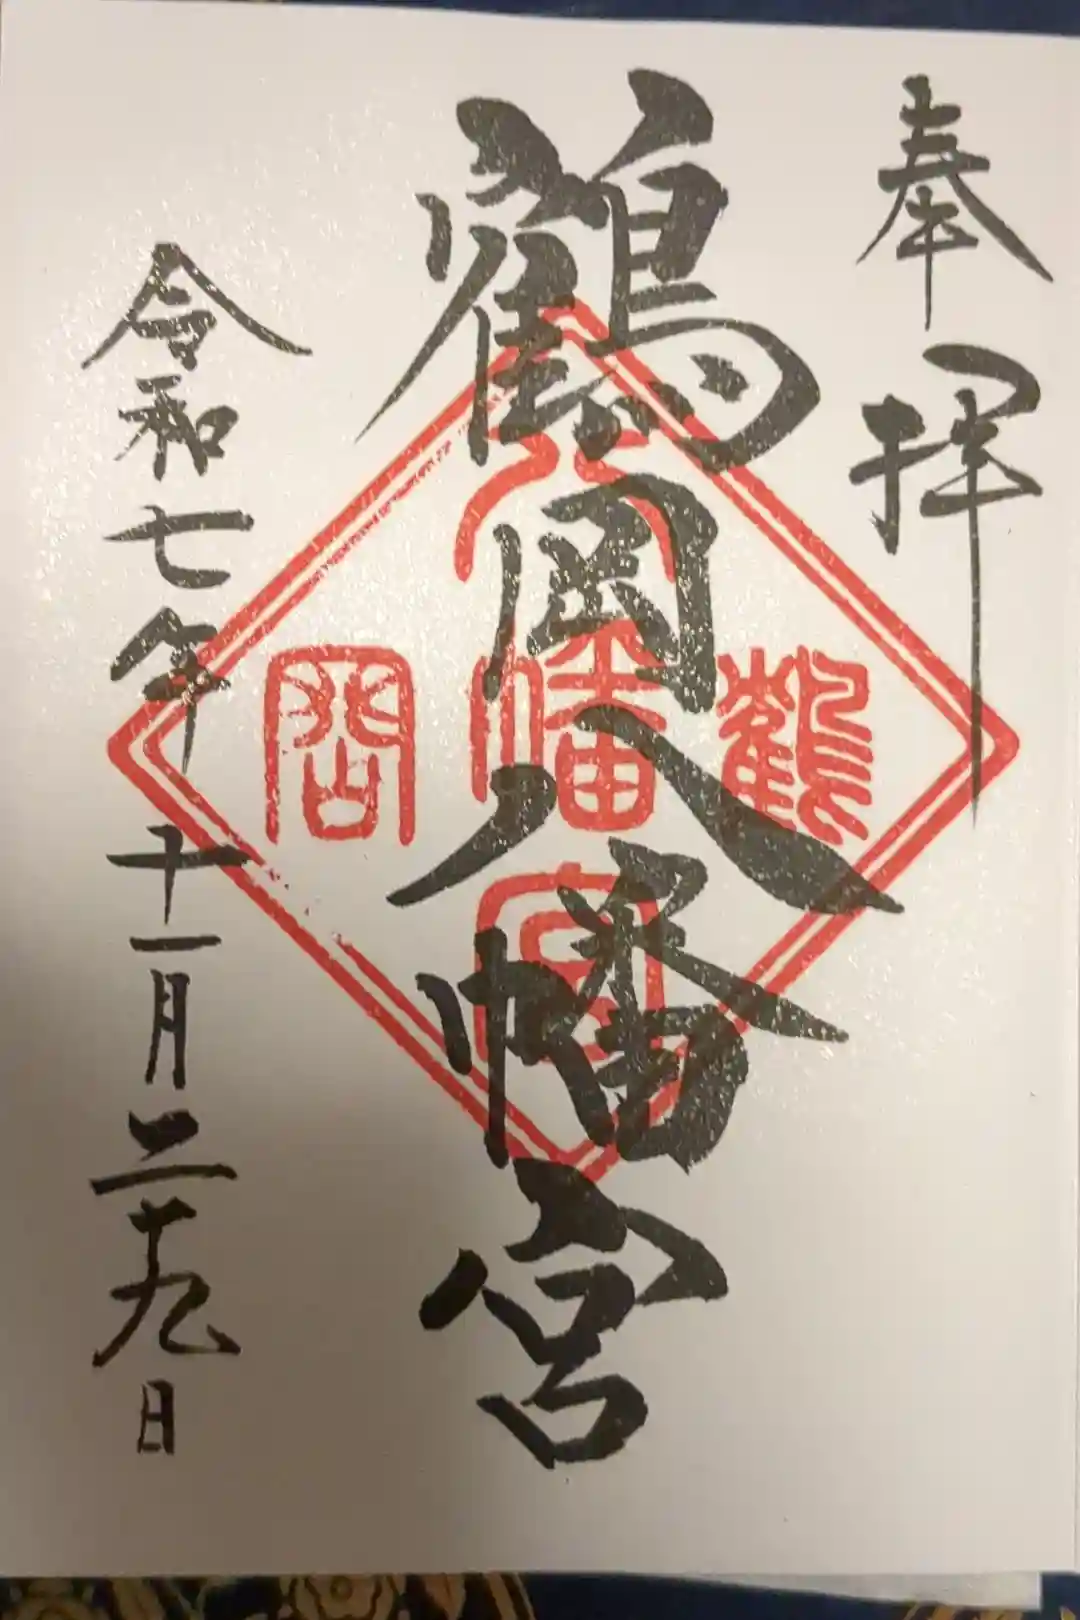 奉拝
鶴岡八幡宮
令和七年十一月二十九日
鶴
岡
八
幡
宮